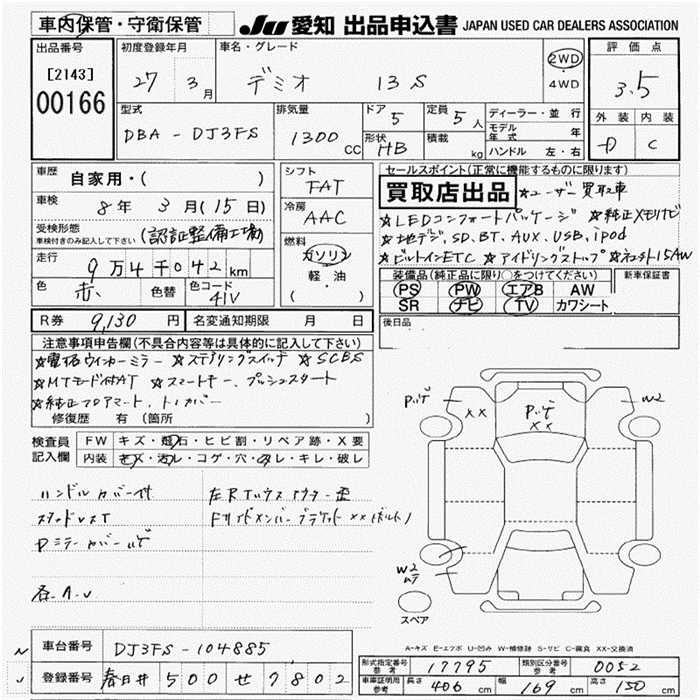 車内保管・守衛保管
JU 愛知 出品申込書 JAPAN USED CAR DEALERS ASSOCIATION
出品番号
[2143]
00166
初度登録年月
27年 3月
車名・グレード
デミオ 13S
2WD
4WD
評価点
3.5
外装 内装
D C
型式
DBA-DJ3FS
排気量
1300 CC
ドア 5
定員 5人
形状 HB
積載 kg
ディーラー・並行
モデル年式 年
ハンドル 左・右
車歴
自家用・( )
車検
8年 3月(15日)
受検形態
車検付きのみ記入して下さい
(認証整備工場)
走行
9万4千042km
色 赤
色替
色コード 41V
シフト
FAT
冷房
AAC
燃料
ガソリン
軽・油
( )
セールスポイント(正常に機能するものに限ります)
買取店出品 ☆ユーザー買取車
☆LEDコンフォートパッケージ ☆純正メモリナビ
☆地デジ,SD,BT,AUX,USB,ipod
☆ビルトインETC ☆アイドリングストップ ☆ 15AW
装備品(純正品に限り○をつけてください)
PS PW エアB AW
SR ナビ TV カワシート
新車保証書
R券 9,130円
名変通知期限 月 日
後日品
注意事項申告欄(不具合内容等は具体的に記入して下さい)
☆電格ウインカーミラー ☆ステアリングスイッチ ☆SCBS
☆MTモード付AT ☆スマートキー、プッシュスタート
☆純正フロアマット、トノカバー
修復歴 有(箇所 )
検査員記入欄
FW キズ・飛石・ヒビ割・リペア跡・X要
内装 キズ・汚レ・コゲ・穴・スレ・キレ・破レ
ハンドルカバー付
左Rアウター歪
Fサイドメンバーブラケットxx(ボルト)
Dミラーカバーハゲ
各A.U
Pハゲ
xx
Pハゲ
xx
W2
W2
スペア
A-キズ E-エクボ U-凹み W-補修跡 S-サビ C-腐食 XX-交換済
車台番号 DJ3FS-104885
登録番号 春日井 500 せ 7802
形式指定番号 参考 17795
類別区分番号 参考 0052
車車証明用 参考 長さ 406 cm 幅 169 cm 高さ 150 cm